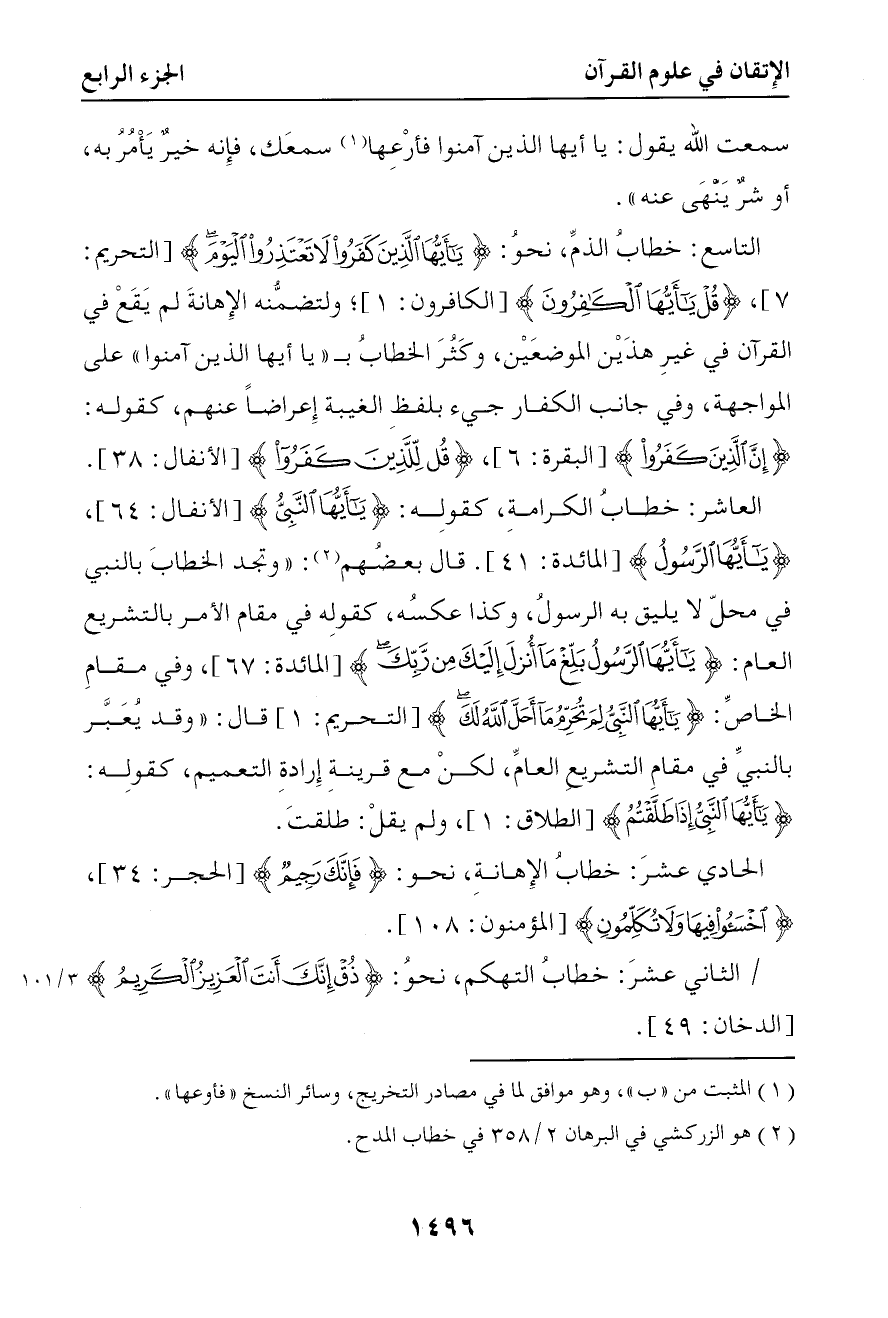 الإتقان في علوم القرآن
الجزء الرابع
سمعت الله يقول: يا أيها الذين آمنوا فأرْعِها(١) سمعَك، فإنه خيرٌ يَأْمُرُ به،
أو شرٌ يَنْهَى عنه».
التاسع: خطابُ الذمِّ، نحوُ: ﴿يَٰٓأَيُّهَا ٱلَّذِينَ كَفَرُوا۟ لَا تَعْتَذِرُوا۟ ٱلْيَوْمَ ۖ﴾ [التحريم:
٧]، ﴿قُلْ يَٰٓأَيُّهَا ٱلْكَٰفِرُونَ﴾ [الكافرون: ١]؛ ولتضمُّنه الإهانةَ لم يَقَعْ في
القرآن في غيرِ هذَيْن الموضعَيْن، وكَثُرَ الخطابُ بـ «يا أيها الذين آمنوا» على
المواجهة، وفي جانب الكفار جيء بلفظ الغيبة إعراضاً عنهم، كقوله:
﴿إِنَّ ٱلَّذِينَ كَفَرُوا۟﴾ [البقرة: ٦]، ﴿قُل لِّلَّذِينَ كَفَرُوٓا۟﴾ [الأنفال: ٣٨].
العاشر: خطابُ الكرامة، كقوله: ﴿يَٰٓأَيُّهَا ٱلنَّبِىُّ﴾ [الأنفال: ٦٤]،
﴿يَٰٓأَيُّهَا ٱلرَّسُولُ﴾ [المائدة: ٤١]. قال بعضُهم(٢): «وتجد الخطابَ بالنبي
في محلّ لا يليق به الرسولُ، وكذا عكسُه، كقوله في مقام الأمر بالتشريع
العام: ﴿يَٰٓأَيُّهَا ٱلرَّسُولُ بَلِّغْ مَآ أُنزِلَ إِلَيْكَ مِن رَّبِّكَ ۖ﴾ [المائدة: ٦٧]، وفي مقامِ
الخاصِّ: ﴿يَٰٓأَيُّهَا ٱلنَّبِىُّ لِمَ تُحَرِّمُ مَآ أَحَلَّ ٱللَّهُ لَكَ ۖ﴾ [التحريم: ١] قال: «وقد يُعَبَّر
بالنبيِّ في مقامِ التشريعِ العامِّ، لكنْ مع قرينةِ إرادةِ التعميم، كقوله:
﴿يَٰٓأَيُّهَا ٱلنَّبِىُّ إِذَا طَلَّقْتُمُ﴾ [الطلاق: ١]، ولم يقلْ: طلقتَ.
الحادي عشرَ: خطابُ الإهانة، نحو: ﴿فَإِنَّكَ رَجِيمٌ﴾ [الحجر: ٣٤]،
﴿ٱخْسَـُٔوا۟ فِيهَا وَلَا تُكَلِّمُونِ﴾ [المؤمنون: ١٠٨].
/ الثاني عشرَ: خطابُ التهكم، نحوُ: ﴿ذُقْ إِنَّكَ أَنتَ ٱلْعَزِيزُ ٱلْكَرِيمُ﴾ ١٠١/٣
[الدخان: ٤٩].
(١) المثبت من «ب»، وهو موافق لما في مصادر التخريج، وسائر النسخ «فأوعها».
(٢) هو الزركشي في البرهان ٣٥٨/٢ في خطاب المدح.
١٤٩٦